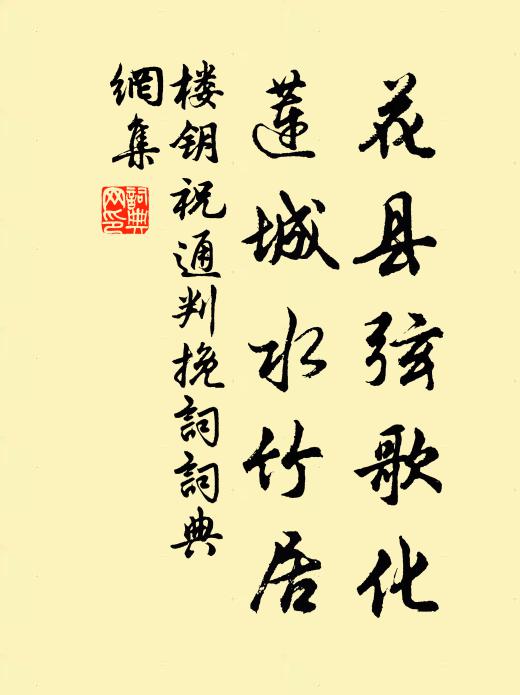 花县弦歌化
莲城水竹居
楼钥祝通判挽词詞典
網集
詞典
网印